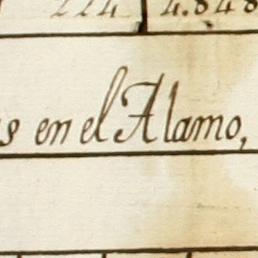 224 4.848
s en el Alamo,